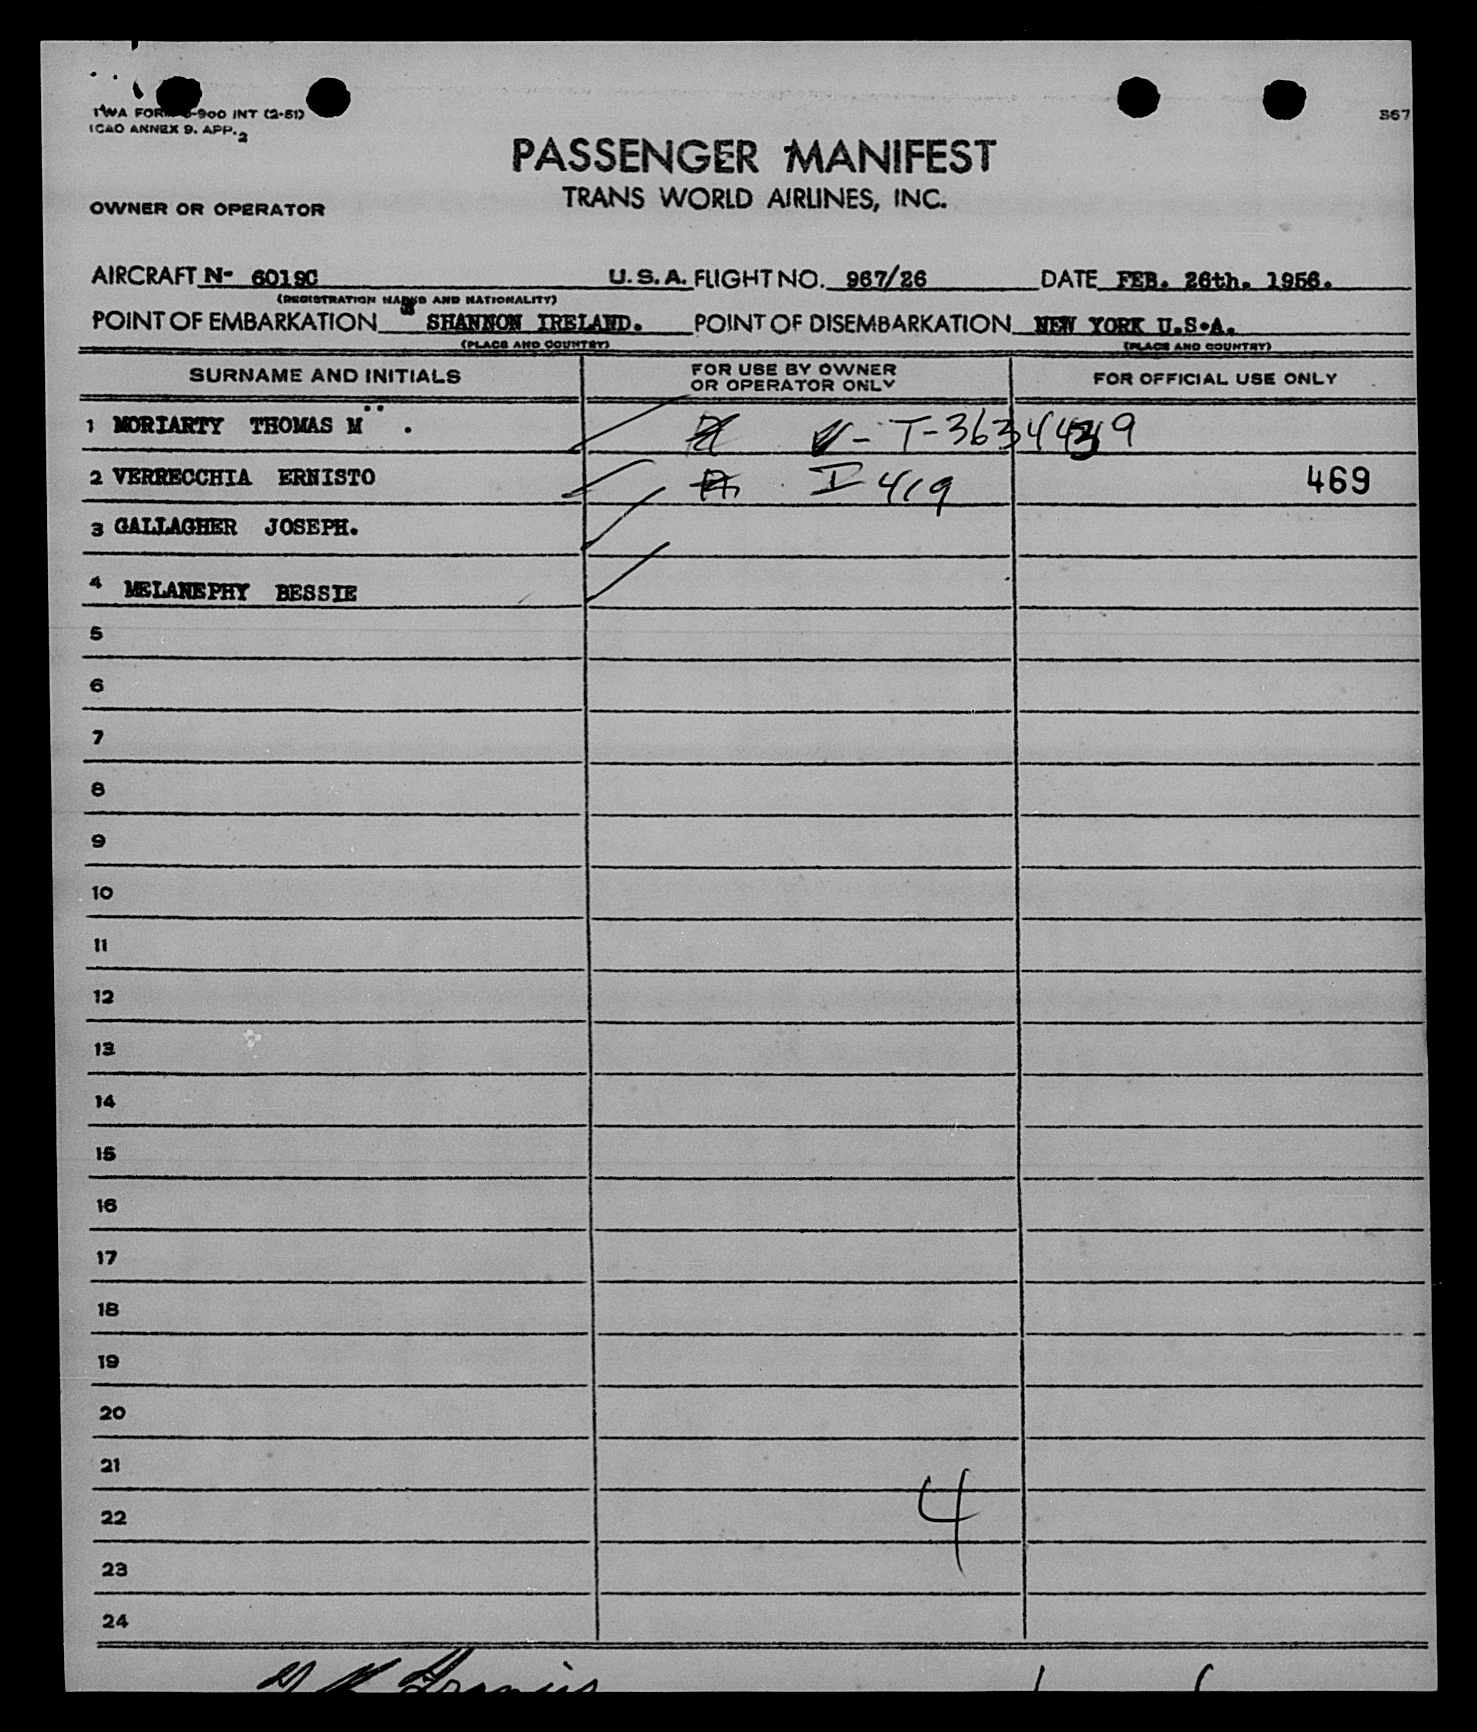 TWA FORM -900 INT (2-51)
ICAO ANNEX 9. APP. 2
367
PASSENGER MANIFEST
TRANS WORLD AIRLINES, INC.
OWNER OR OPERATOR
AIRCRAFT N- 6019C U.S.A. FLIGHT NO. 967/26 DATE FEB. 26th. 1956.
(REGISTRATION MARKS AND NATIONALITY)
POINT OF EMBARKATION SHANNON IRELAND. POINT OF DISEMBARKATION NEW YORK U.S.A.
(PLACE AND COUNTRY) (PLACE AND COUNTRY)
SURNAME AND INITIALS FOR USE BY OWNER OR OPERATOR ONLY FOR OFFICIAL USE ONLY
1 MORIARTY THOMAS M . V - T-3634439
2 VERRECCHIA ERNISTO I 419 469
3 GALLAGHER JOSEPH.
4 MELANEPHY BESSIE
5
6
7
8
9
10
11
12
13
14
15
16
17
18
19
20
21
22 4
23
24